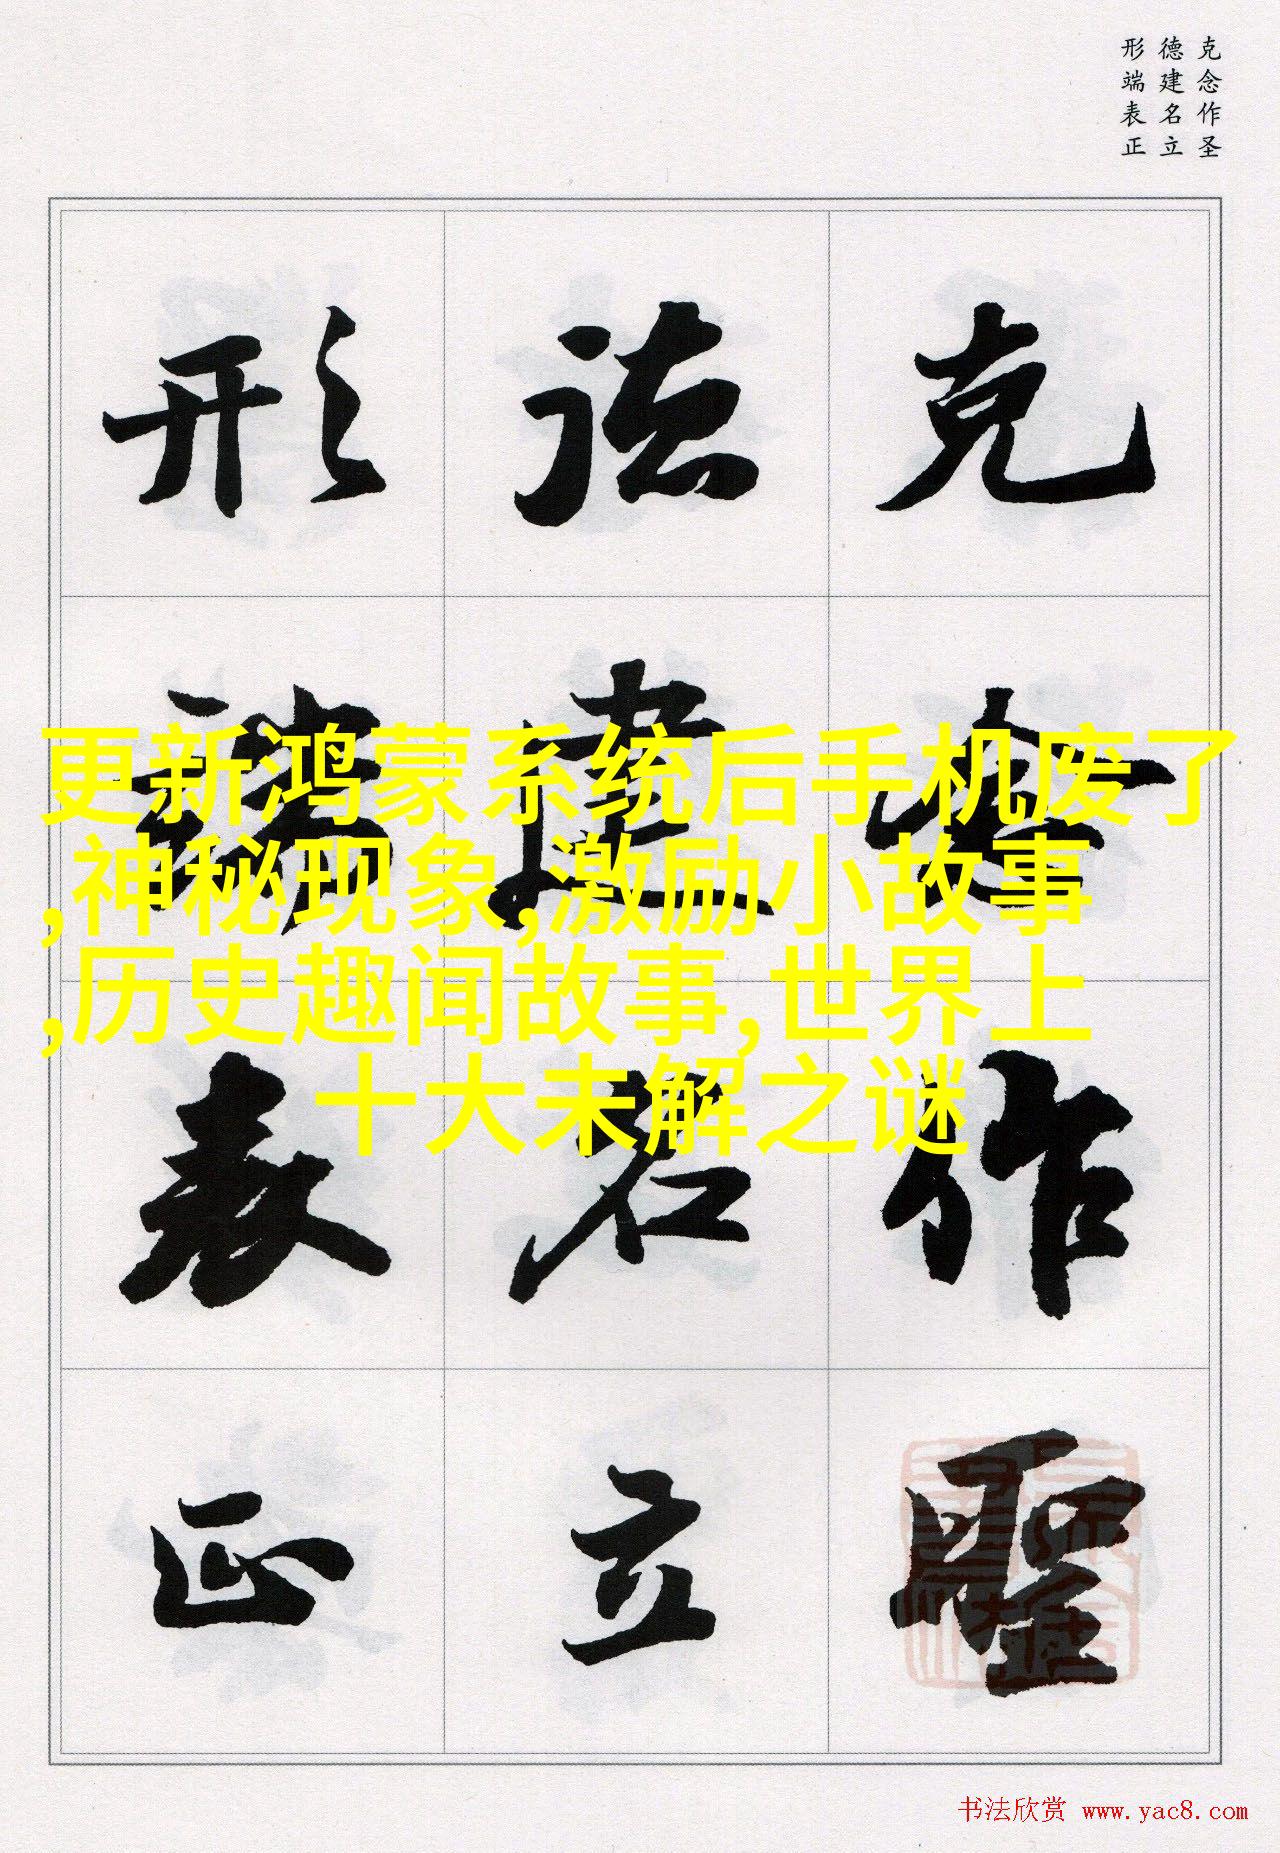 克念作圣
德建名立
形端表正
克念作聖
德建名立
形端表正
更新鸿蒙系统后手机废了
,神秘现象,激励小故事
,历史趣闻故事,世界上
十大未解之谜
书法欣赏 www.yac8.com